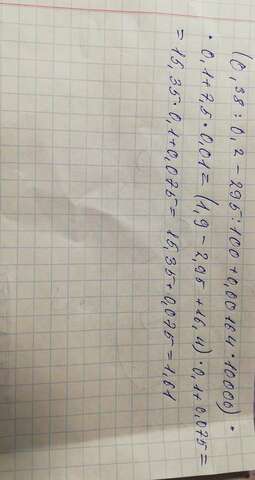 (0,38:0,2-295:100+0,00164·10000)·
·0,1+7,5·0,01=(1,9-2,95+16,4)·0,1+0,075=
=15,35·0,1+0,075=15,35+0,075=1,61